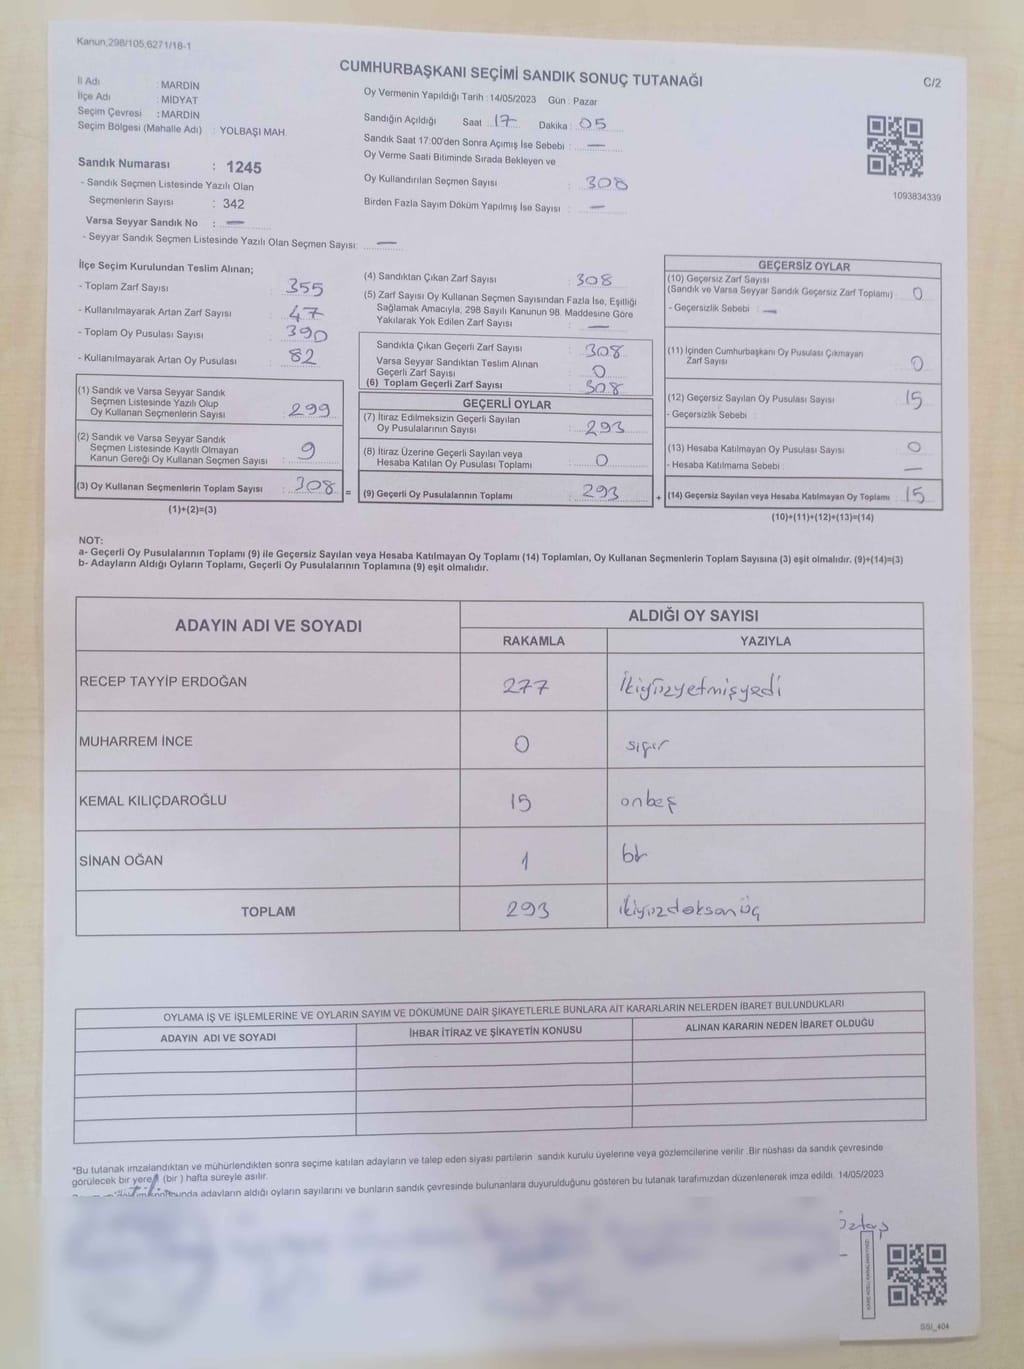 Kanun,298/105,6271/18-1
CUMHURBAŞKANI SEÇİMİ SANDIK SONUÇ TUTANAĞI
C/2
İl Adı : MARDİN
İlçe Adı : MİDYAT
Seçim Çevresi : MARDİN
Seçim Bölgesi (Mahalle Adı) : YOLBAŞI MAH.
Sandık Numarası : 1245
- Sandık Seçmen Listesinde Yazılı Olan
Seçmenlerin Sayısı : 342
Varsa Seyyar Sandık No : —
- Seyyar Sandık Seçmen Listesinde Yazılı Olan Seçmen Sayısı: —
Oy Vermenin Yapıldığı Tarih : 14/05/2023 Gün : Pazar
Sandığın Açıldığı Saat 17 Dakika : 05
Sandık Saat 17:00'den Sonra Açımış İse Sebebi : —
Oy Verme Saati Bitiminde Sırada Bekleyen ve
Oy Kullandırılan Seçmen Sayısı : 308
Birden Fazla Sayım Döküm Yapılmış İse Sayısı : —
1093834339
İlçe Seçim Kurulundan Teslim Alınan;
- Toplam Zarf Sayısı : 355
- Kullanılmayarak Artan Zarf Sayısı : 47
- Toplam Oy Pusulası Sayısı : 390
- Kullanılmayarak Artan Oy Pusulası : 82
(1) Sandık ve Varsa Seyyar Sandık
Seçmen Listesinde Yazılı Olup
Oy Kullanan Seçmenlerin Sayısı : 299
(2) Sandık ve Varsa Seyyar Sandık
Seçmen Listesinde Kayıtlı Olmayan
Kanun Gereği Oy Kullanan Seçmen Sayısı : 9
(3) Oy Kullanan Seçmenlerin Toplam Sayısı : 308 =
(1)+(2)=(3)
(4) Sandıktan Çıkan Zarf Sayısı : 308
(5) Zarf Sayısı Oy Kullanan Seçmen Sayısından Fazla İse, Eşitliği
Sağlamak Amacıyla, 298 Sayılı Kanunun 98. Maddesine Göre
Yakılarak Yok Edilen Zarf Sayısı : —
Sandıkta Çıkan Geçerli Zarf Sayısı : 308
Varsa Seyyar Sandıktan Teslim Alınan
Geçerli Zarf Sayısı : 0
(6) Toplam Geçerli Zarf Sayısı : 308
GEÇERLİ OYLAR
(7) İtiraz Edilmeksizin Geçerli Sayılan
Oy Pusulalarının Sayısı : 293
(8) İtiraz Üzerine Geçerli Sayılan veya
Hesaba Katılan Oy Pusulası Toplamı : 0
(9) Geçerli Oy Pusulalarının Toplamı : 293 +
GEÇERSİZ OYLAR
(10) Geçersiz Zarf Sayısı
(Sandık ve Varsa Seyyar Sandık Geçersiz Zarf Toplamı) : 0
- Geçersizlik Sebebi : —
(11) İçinden Cumhurbaşkanı Oy Pusulası Çıkmayan
Zarf Sayısı : 0
(12) Geçersiz Sayılan Oy Pusulası Sayısı : 15
- Geçersizlik Sebebi :
(13) Hesaba Katılmayan Oy Pusulası Sayısı : 0
- Hesaba Katılmama Sebebi : —
(14) Geçersiz Sayılan veya Hesaba Katılmayan Oy Toplamı : 15
(10)+(11)+(12)+(13)=(14)
NOT:
a- Geçerli Oy Pusulalarının Toplamı (9) ile Geçersiz Sayılan veya Hesaba Katılmayan Oy Toplamı (14) Toplamları, Oy Kullanan Seçmenlerin Toplam Sayısına (3) eşit olmalıdır. (9)+(14)=(3)
b- Adayların Aldığı Oyların Toplamı, Geçerli Oy Pusulalarının Toplamına (9) eşit olmalıdır.
ADAYIN ADI VE SOYADI
ALDIĞI OY SAYISI
RAKAMLA YAZIYLA
RECEP TAYYİP ERDOĞAN 277 İkiyüzyetmişyedi
MUHARREM İNCE 0 sıfır
KEMAL KILIÇDAROĞLU 15 onbeş
SİNAN OĞAN 1 bir
TOPLAM 293 ikiyüzdoksanüç
OYLAMA İŞ VE İŞLEMLERİNE VE OYLARIN SAYIM VE DÖKÜMÜNE DAİR ŞİKAYETLERLE BUNLARA AİT KARARLARIN NELERDEN İBARET BULUNDUKLARI
ADAYIN ADI VE SOYADI İHBAR İTİRAZ VE ŞİKAYETİN KONUSU ALINAN KARARIN NEDEN İBARET OLDUĞU
*Bu tutanak imzalandıktan ve mühürlendikten sonra seçime katılan adayların ve talep eden siyasi partilerin sandık kurulu üyelerine veya gözlemcilerine verilir .Bir nüshası da sandık çevresinde
görülecek bir yere (bir ) hafta süreyle asılır.
adayların aldığı oyların sayılarını ve bunların sandık çevresinde bulunanlara duyurulduğunu gösteren bu tutanak tarafımızdan düzenlenerek imza edildi. 14/05/2023
SSI_404